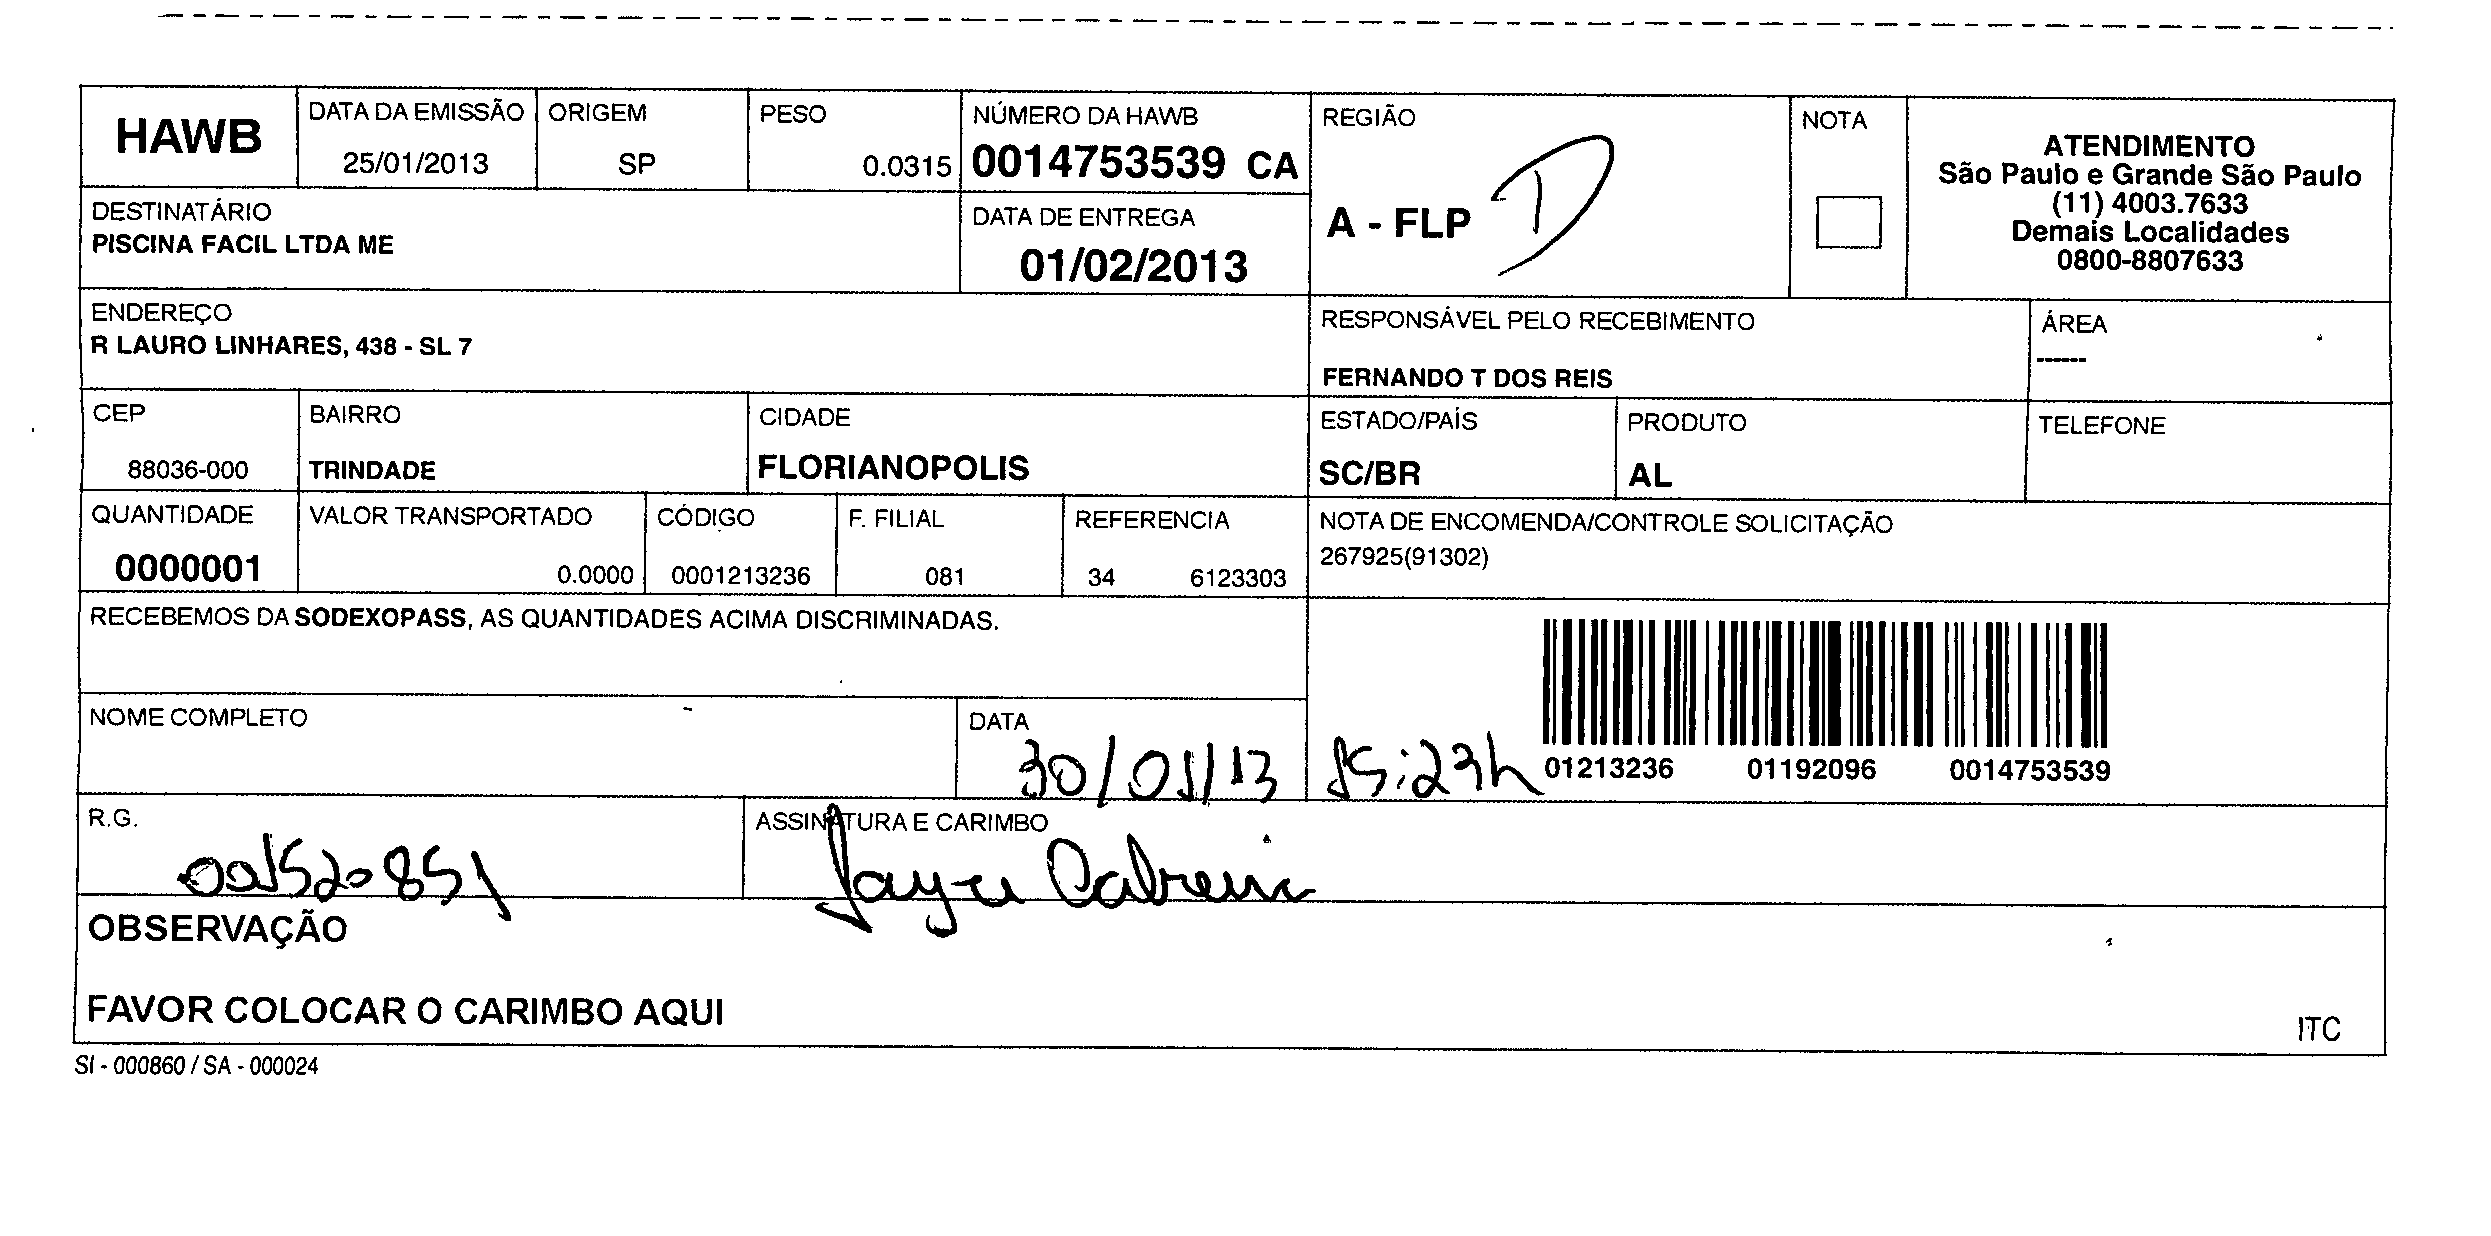 HAWB
DATA DA EMISSÃO
25/01/2013
ORIGEM
SP
PESO
0.0315
NÚMERO DA HAWB
0014753539 CA
REGIÃO
A - FLP
D
NOTA
ATENDIMENTO
São Paulo e Grande São Paulo
(11) 4003.7633
Demais Localidades
0800-8807633
DESTINATÁRIO
PISCINA FACIL LTDA ME
DATA DE ENTREGA
01/02/2013
ENDEREÇO
R LAURO LINHARES, 438 - SL 7
RESPONSÁVEL PELO RECEBIMENTO
FERNANDO T DOS REIS
ÁREA
------
CEP
88036-000
BAIRRO
TRINDADE
CIDADE
FLORIANOPOLIS
ESTADO/PAÍS
SC/BR
PRODUTO
AL
TELEFONE
QUANTIDADE
0000001
VALOR TRANSPORTADO
0.0000
CÓDIGO
0001213236
F. FILIAL
081
REFERENCIA
34 6123303
NOTA DE ENCOMENDA/CONTROLE SOLICITAÇÃO
267925(91302)
RECEBEMOS DA SODEXOPASS, AS QUANTIDADES ACIMA DISCRIMINADAS.
NOME COMPLETO
DATA
30/01/13 15:23h
01213236 01192096 0014753539
R.G.
001520851
ASSINATURA E CARIMBO
Cabreira
OBSERVAÇÃO
FAVOR COLOCAR O CARIMBO AQUI
ITC
SI - 000860 / SA - 000024